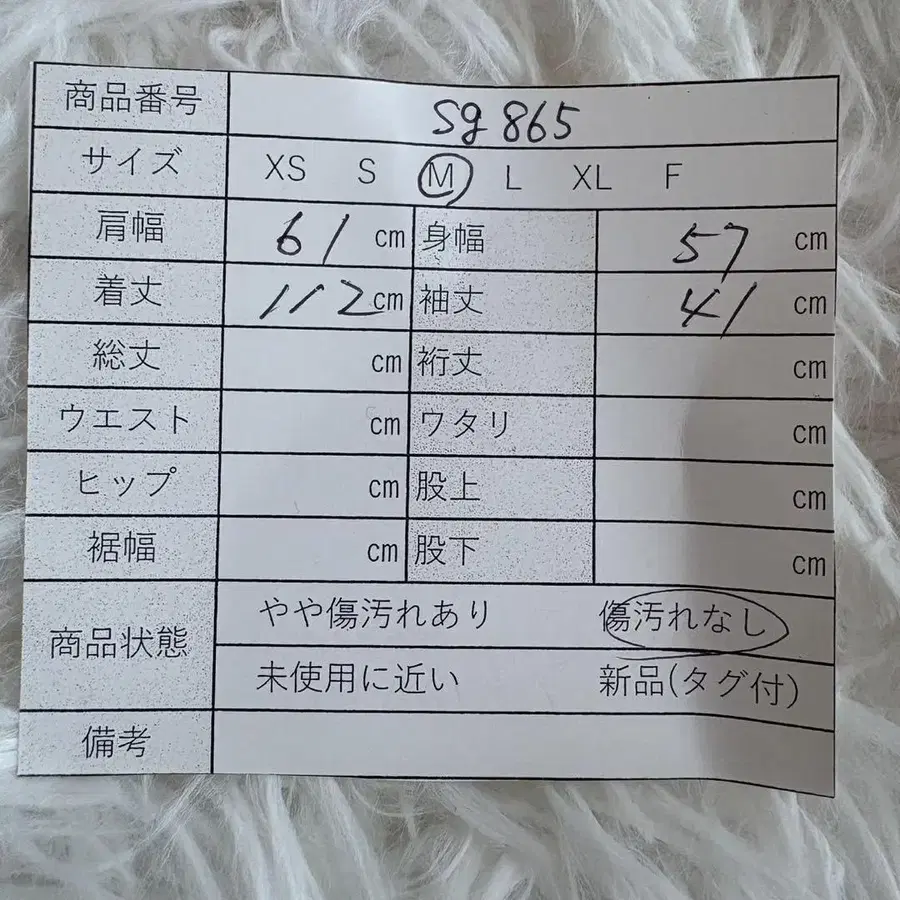 商品番号 sg 865
サイズ XS S M L XL F
肩幅 61 cm 身幅 57 cm
着丈 112 cm 袖丈 41 cm
総丈 cm 裄丈 cm
ウエスト cm ワタリ cm
ヒップ cm 股上 cm
裾幅 cm 股下 cm
商品状態 やや傷汚れあり 傷汚れなし
未使用に近い 新品(タグ付)
備考